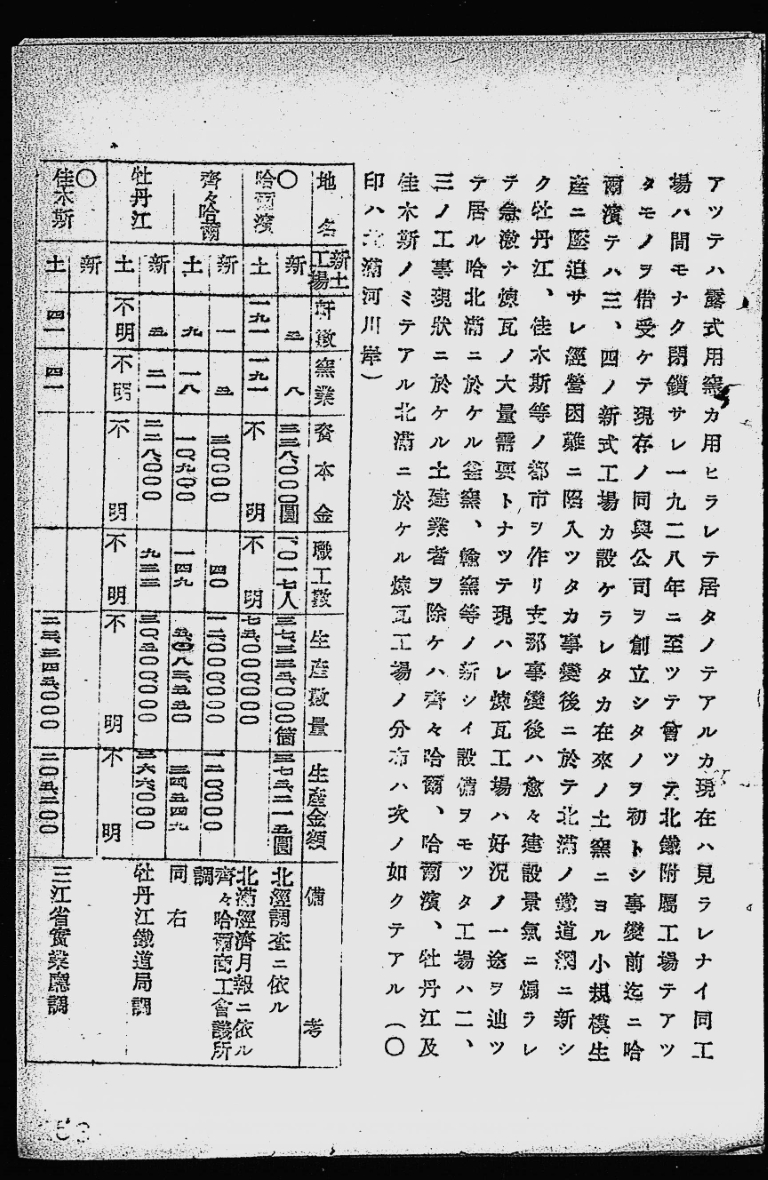 アツテハ露式用窯カ用ヒラレテ居タノテアルカ現在ハ見ラレナイ同工
場ハ間モナク閉鎖サレ一九二八年ニ至ツテ曾ツテ北鐵附屬工場テアツ
タモノヲ借受ケテ現存ノ同興公司ヲ創立シタノヲ初トシ事變前迄ニ哈
爾濱テハ三、四ノ新式工場カ設ケラレタカ在來ノ土窯ニヨル小規模生
産ニ壓迫サレ經營困難ニ陷入ツタカ事變後ニ於テ北滿ノ鐵道網ニ新シ
ク牡丹江、佳木斯等ノ都市ヲ作リ支那事變後ハ愈々建設景氣ニ煽ラレ
テ急激ナ煉瓦ノ大量需要トナツテ現ハレ煉瓦工場ハ好況ノ一途ヲ辿ツ
テ居ル哈北滿ニ於ケル窯、輪窯等ノ新シイ設備ヲモツタ工場ハ二、
三ノ工事現狀ニ於ケル土建業者ヲ除ケハ齊々哈爾、哈爾濱、牡丹江及
佳木斯ノミテアル北滿ニ於ケル煉瓦工場ノ分布ハ次ノ如クテアル（〇
印ハ北滿河川岸）
地名 新土工場 軒數 窯業 資本金 職工數 生産數量 生産金額 備考
〇哈爾濱 新 三 八 圓 一、〇一七人 箇 圓 北經調査ニ依ル
土 一九一 一九一 不明 不明 七五、〇〇〇、〇〇〇 北滿經濟月報ニ依ル
齊々哈爾 新 一 三 三〇、〇〇〇 四〇 一二、〇〇〇、〇〇〇 一二〇、〇〇〇 齊々哈爾商工會議所調
土 九 一八 一〇、九〇〇 一四九 同右
牡丹江 新 二一 二二八、〇〇〇 九三三 三〇、五〇〇、〇〇〇 三六六、〇〇〇 牡丹江鐵道局調
土 不明 不明 不明 不明 不明 不明
〇佳木斯 新
土 四一 四一 二三、三四五、〇〇〇 二〇五、二〇〇 三江省實業廳調